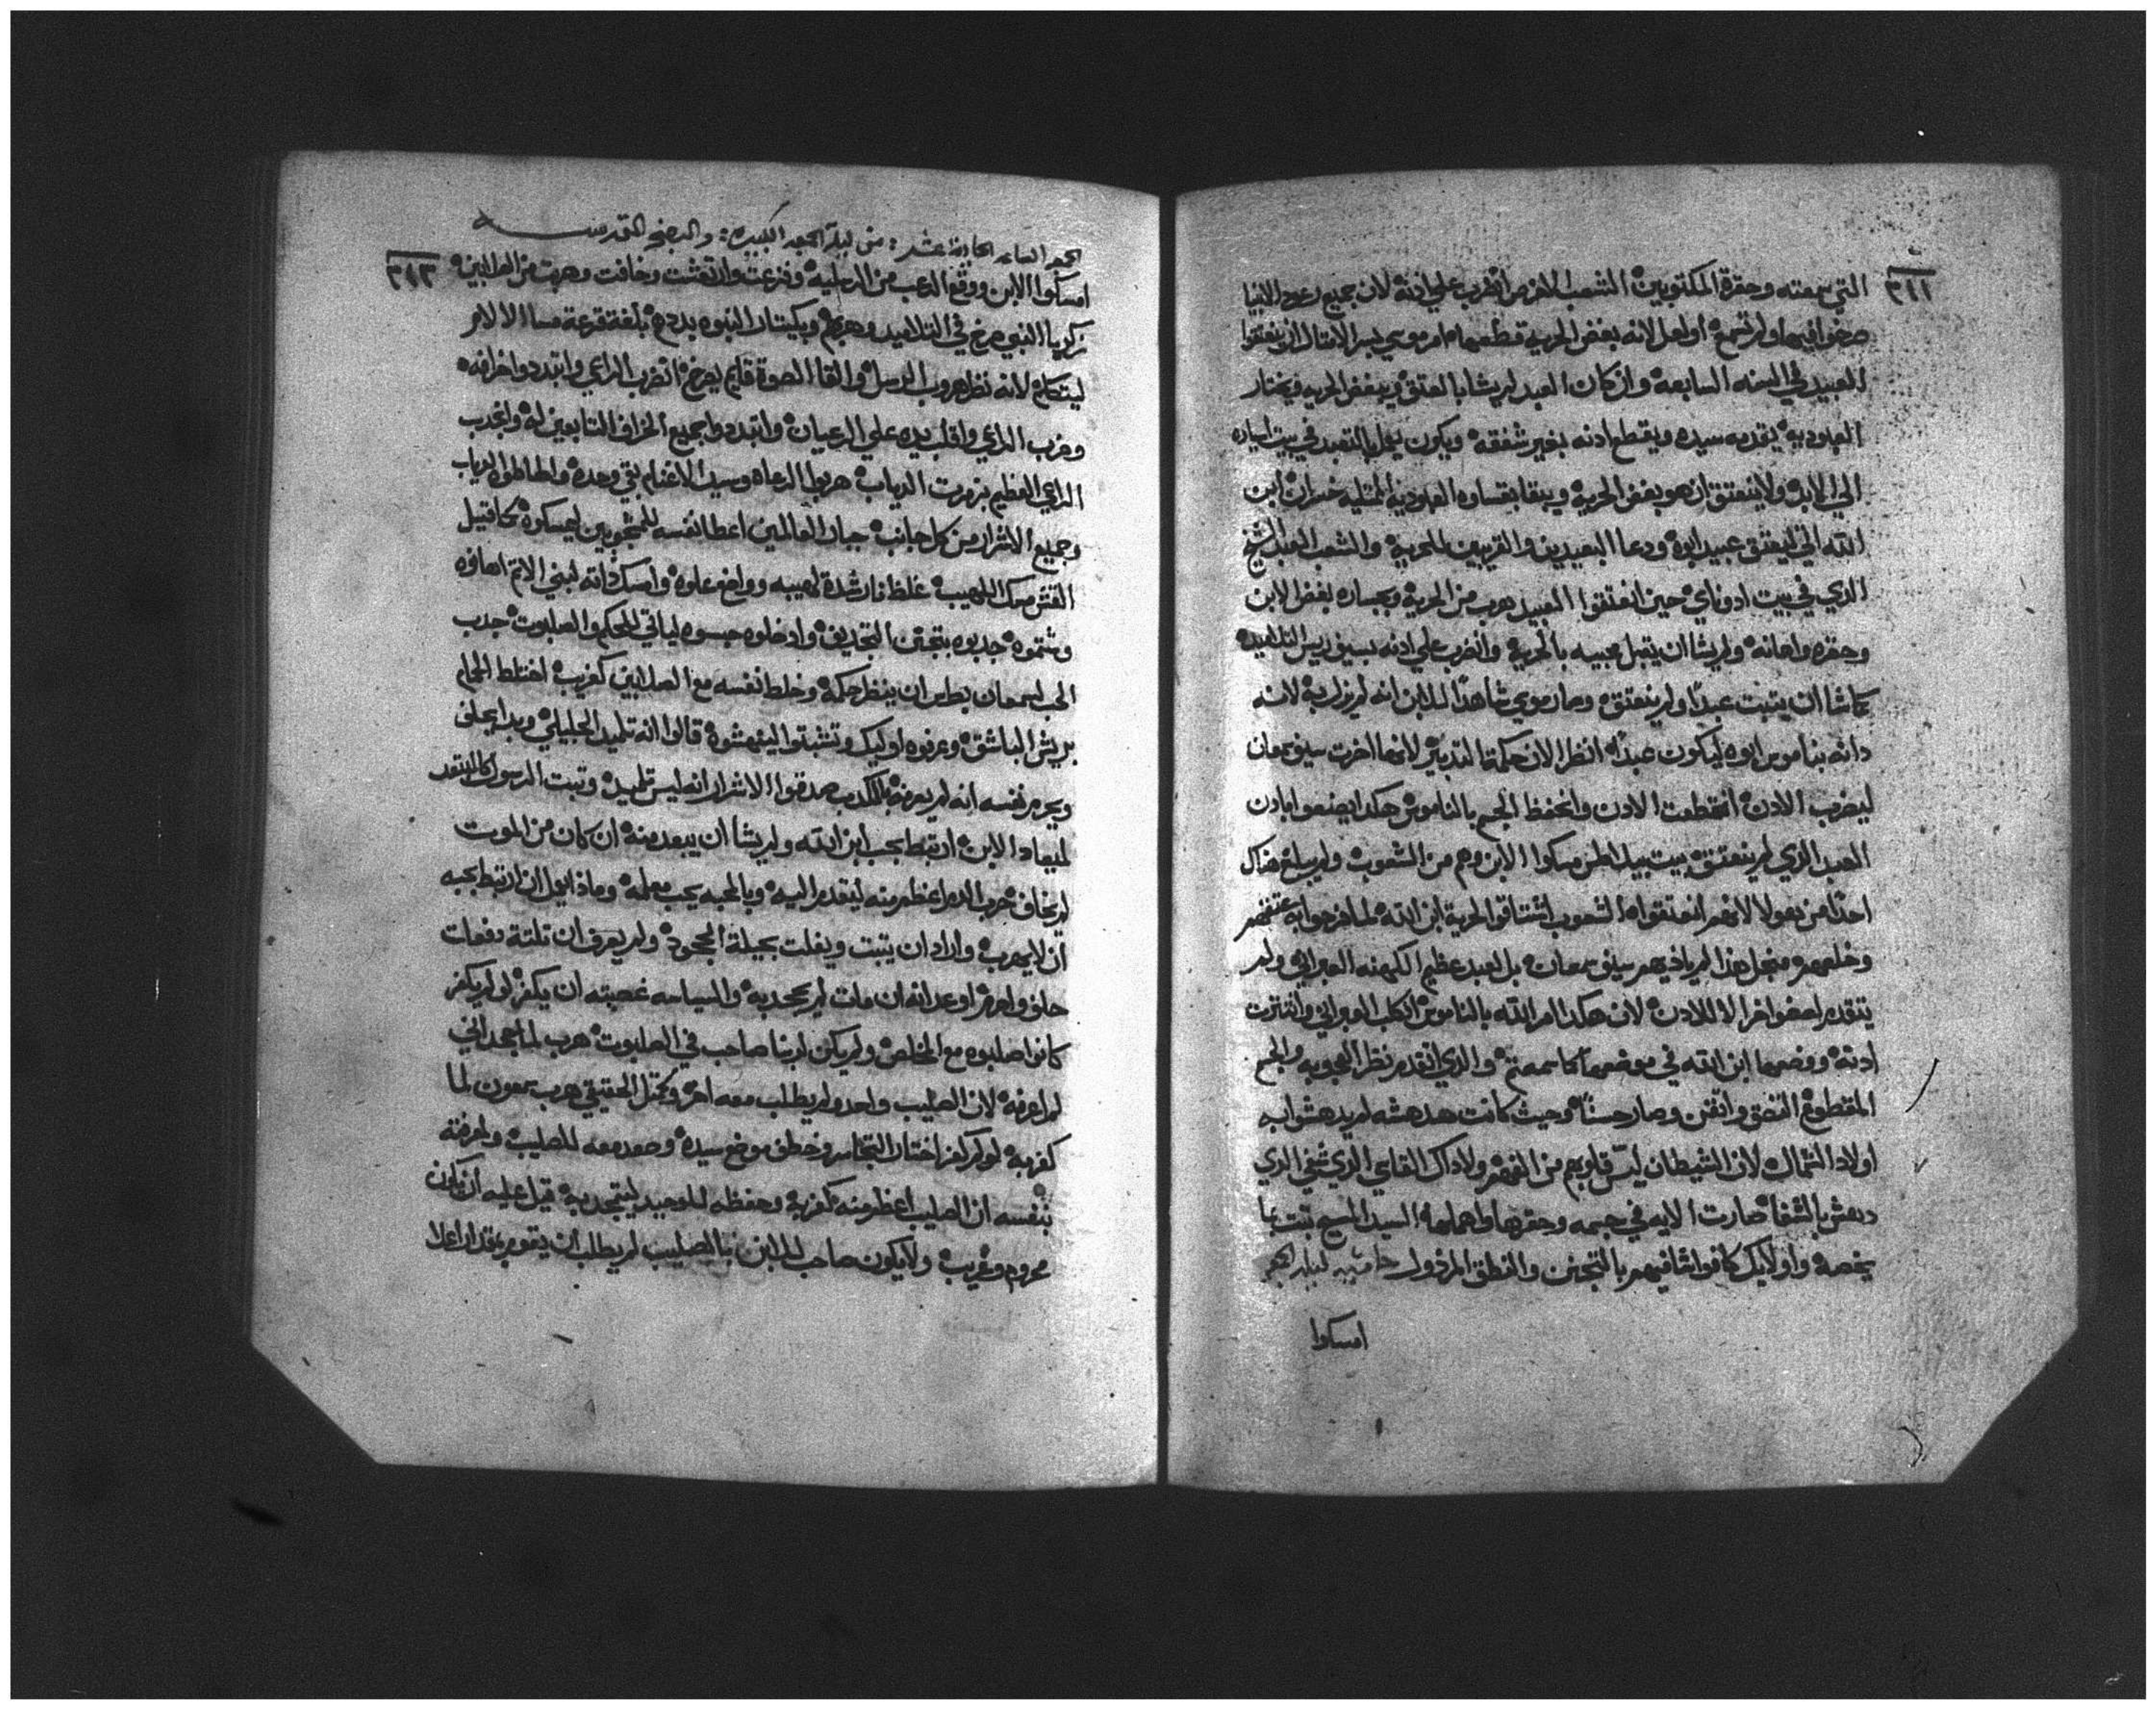 التي سمعته وحقرة المكتوبين الشعب الاخرص انضرب علي ادنه لان جميع رعود الانبيا
صرخوا فيهم ولم تسمع اولعل لانه بغض الحرية قطعها امر موسي لبسر الامثال ان ينعتقوا
العبيد في السنه السابعة وان كان العبد لم يشا بالعتق ويبغض الحريه ويختار
العبوديه يقدمه سيده ويقطع ادنه بغير شفقه ويكون بالتعبد في بيت
الي الابد ولا ينعتق ان هو بغض الحرية ويبقا بقساوه العبوديه ابن
الله اتي ليعتق عبيد ابوه ودعا البعيدين والقريبين للحرية والشعب العبد الشيخ
الدي في بيت ادوناي حين انعتقوا العبيد هرب من الحرية وبجساره بغض الابن
وحقره واهانه ولم يشا ان يقبل بالحرية وانضرب علي ادنه بسيف ريس التلاميد
كما شا ان يتبت عبدا ولم ينعتق وصار موسي شاهدا للابن انه لم يزل به لانه
دانه بناموس ابوه ليكون عبدا انظر الان حكمة التدبير لانها اخرت سيف سمعان
ليضرب الادن انقطعت الادن وانحفظ الجسم بالناموس هكدا يصنعوا بادن
العبد الدي لم ينعتق بيت بيلاطس مسكوا الابن وهم من الشعوب ولم يبلغ هناك
احدا من هولا لانهم انعتقوا الشعوب اشتاقوا لحرية ابن الله
وخلصهم من اجل هذا لم ياديهم سيف سمعان بل لعبد عظيم الكهنه العبراني ولم
يتقدم لعضوا اخر الا للادن لان هكدا امر الله بالناموس لكل العبراني
ادنه ووضعها ابن الله في موضعها كما سمعتم والدي انقدم نظر العجوبه والجسم
المقطوع التصق واتقن وصار حسنا وحيث كانت هدهشه لم يدهشوا به
اولاد الشمال لان الشيطان قلوبهم من الفهم ولا داك القاسي الدي شفي الدي
دهش بالشفا صارت الايه في جسمه وحقرها واهملها السيد المسيح تبت بما
يخصه واولايك كانوا شافيهم بالتجنن والنطق المرذول
امسكوا
الساعه الحادية عشر من ليلة الجمعه الكبيره والبصخه المقدسه
امسكوا الابن ووقع الرعب من الرسليه وفزعت وارتعشت وخافت وهربت من الصالبين
زكريا النبي صرخ في التلاميد وبكيتار النبوه بلغة قرعة مسا الالام
ليتكلم لانه نظر هروب الرسل والقا الصوة قايم يصرخ انضرب الراعي وابتددوا خرافه
وضرب الراعي واقلب يده علي الرعيان وابتددوا جميع الخراف التابعين له وانجدب
الراعي العظيم بزمرت الدياب هربوا الرعاه وسيد الاغنام بقي وحده واحاطوا الدياب
وجميع الاشرار من كل جانب جبار العالمين اعطا نفسه ليمسكوه
القش مسك اللهيب غلظ نار شدة لهيبه ووضع علوه وامسك داته لبني الاتم اهانوه
وشتموه جدبوه بتجنن التجديف وادخلوه حبسوه لياتي للحكم والصلبوت جدب
الحب لسمعان بطرس ان ينظر حكمه وخلط نفسه مع الصالبين كغريب اختلط الحمام
بريش الباشق وعرفوه اوليك وتشبتوا لينهشوه قالوا انه تلميد الجليلي وبدا يحلف
ويحرم نفسه انه لم يعرفه بالكدب صدقوا الاشرار انه ليس تلميد وتبت الرسول
لميعاد الابن ارتبط بحب ابن الله ولم يشا ان يبعد منه ان كان من الموت
لم يخاف حرب الدم اعظم منه ليتقدم اليه وبالمحبه يحب معلمه وماذا اقول ان ارتبط بحبه
ان لا يهرب واراد ان يتبت ويفلت بحيلة الجحود ولم يعرف ان تلتة دفعات
حلف واحرم اوعد انه ان مات لم يجحد به والسياسه غصبته ان يكفر لو لم يكفر
كانوا صلبوه مع المخلص ولم يكن لربنا صاحب في الصلبوت هرب لما جحد اني
لم اعرفه لان الصليب واحد ولم يطلب معه اخر الحقيقي هرب سمعون لما
كفر به لو لم يكفر اختار التجاسر وخطف موضع سيده وصعد معه للصليب ولمعرفته
بنفسه ان الصليب اعظم منه كفر به وحفظه للوحيد ليتمجد به قيل عليه ان يكون
محروم وغريب ولا يكون صاحب للابن بالصليب لم يطلب ان يقوم بمقدار اعلا